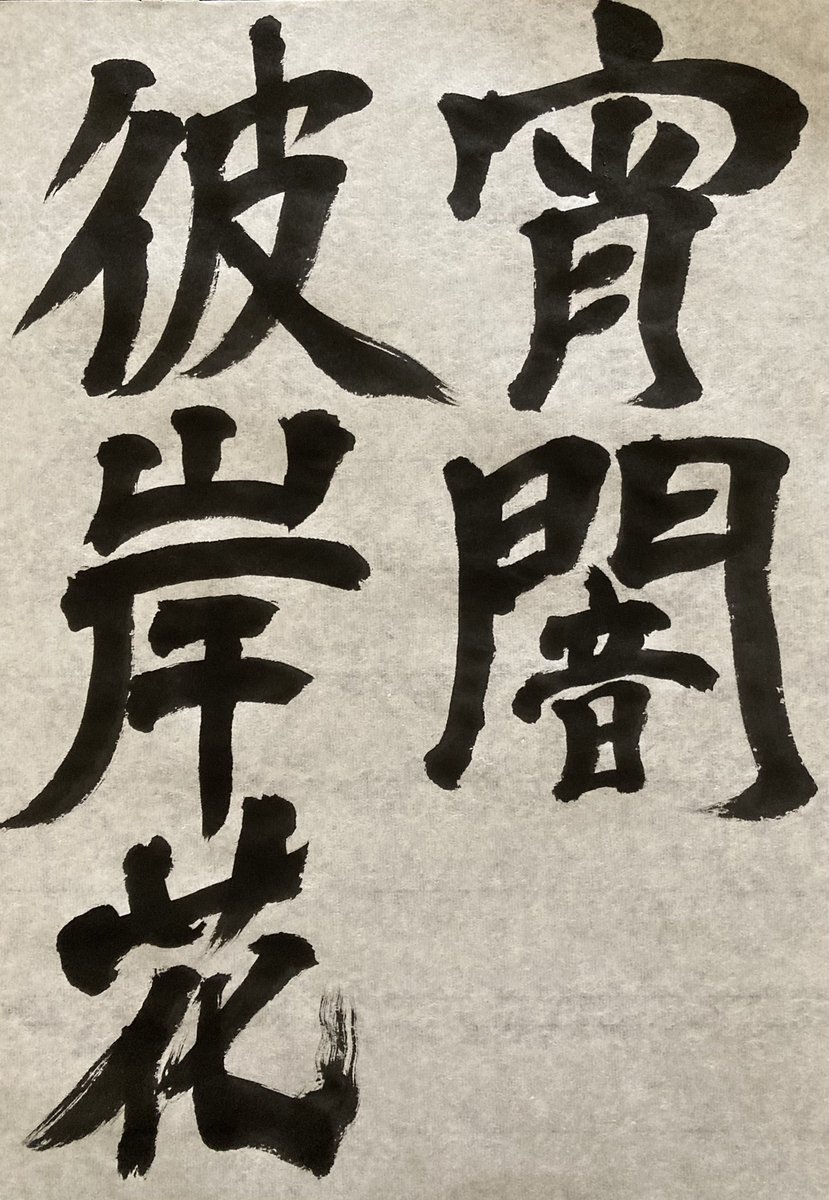 宵闇
彼岸花